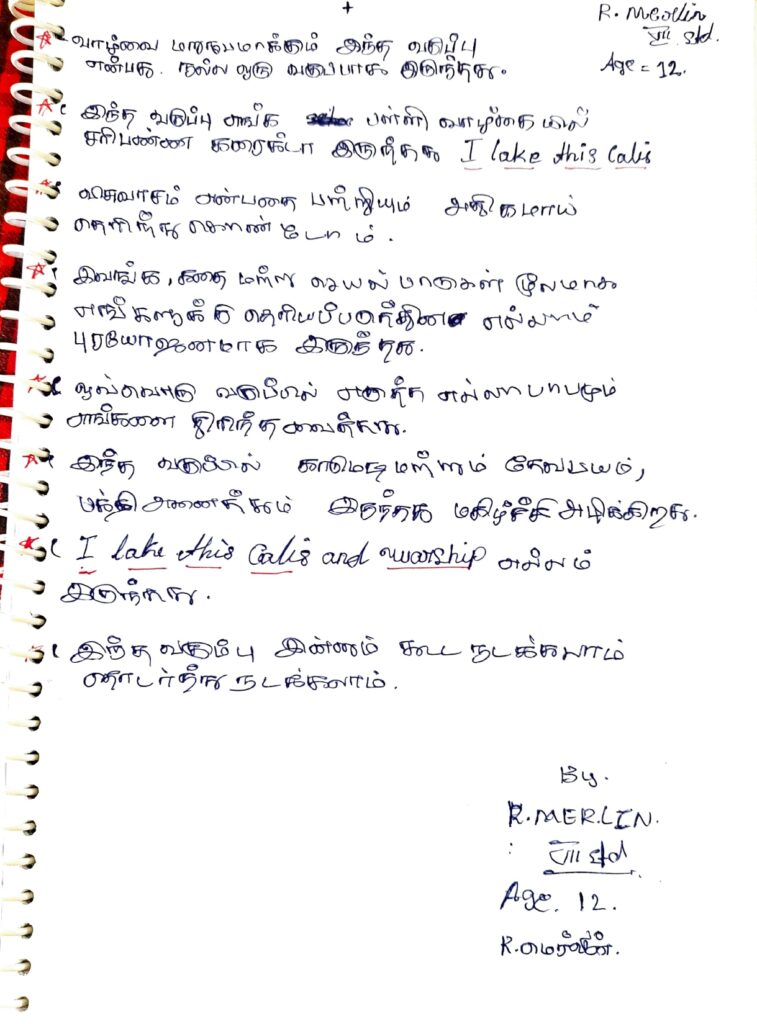 +
R. Merlin
VII std.
Age = 12.
வாழ்வை மறுரூபமாக்கும் இந்த வகுப்பு
என்பது. நல்ல ஒரு வகுப்பாக இருந்தது.
இந்த வகுப்பு எங்க பள்ளி வாழ்கை யில்
சரிபண்ண இருந்தது I lake this Calis
விசுவாசம் என்பதை பற்றியும் அதிகமாய்
தெரிந்து கொண் டோ ம்.
இவங்க, கதை மற்று செயல் பாடுகள் மூலமாக
எங்களுக்கு எல்லாம்
புரயோஜனமாக இருந்தது.
ஒவ்வொரு வகுப்பில் எல்லா பாடமும்
எங்களை
இந்த வகுப்பில் காமெடி மற்றும் தேவபயம்,
பக்தி அனைத்தும் இருந்தது மகிழ்ச்சி அழிக்கிறது.
I lake this Calis and wарship எல்லம்
இருந்தது.
இந்த வகுப்பு இன்னும் கூட நடக்கலாம்
தொடர்ந்து நடக்கலாம்.
By.
R.MERLIN.
VII std
Age. 12.
R.மெர்லின்.